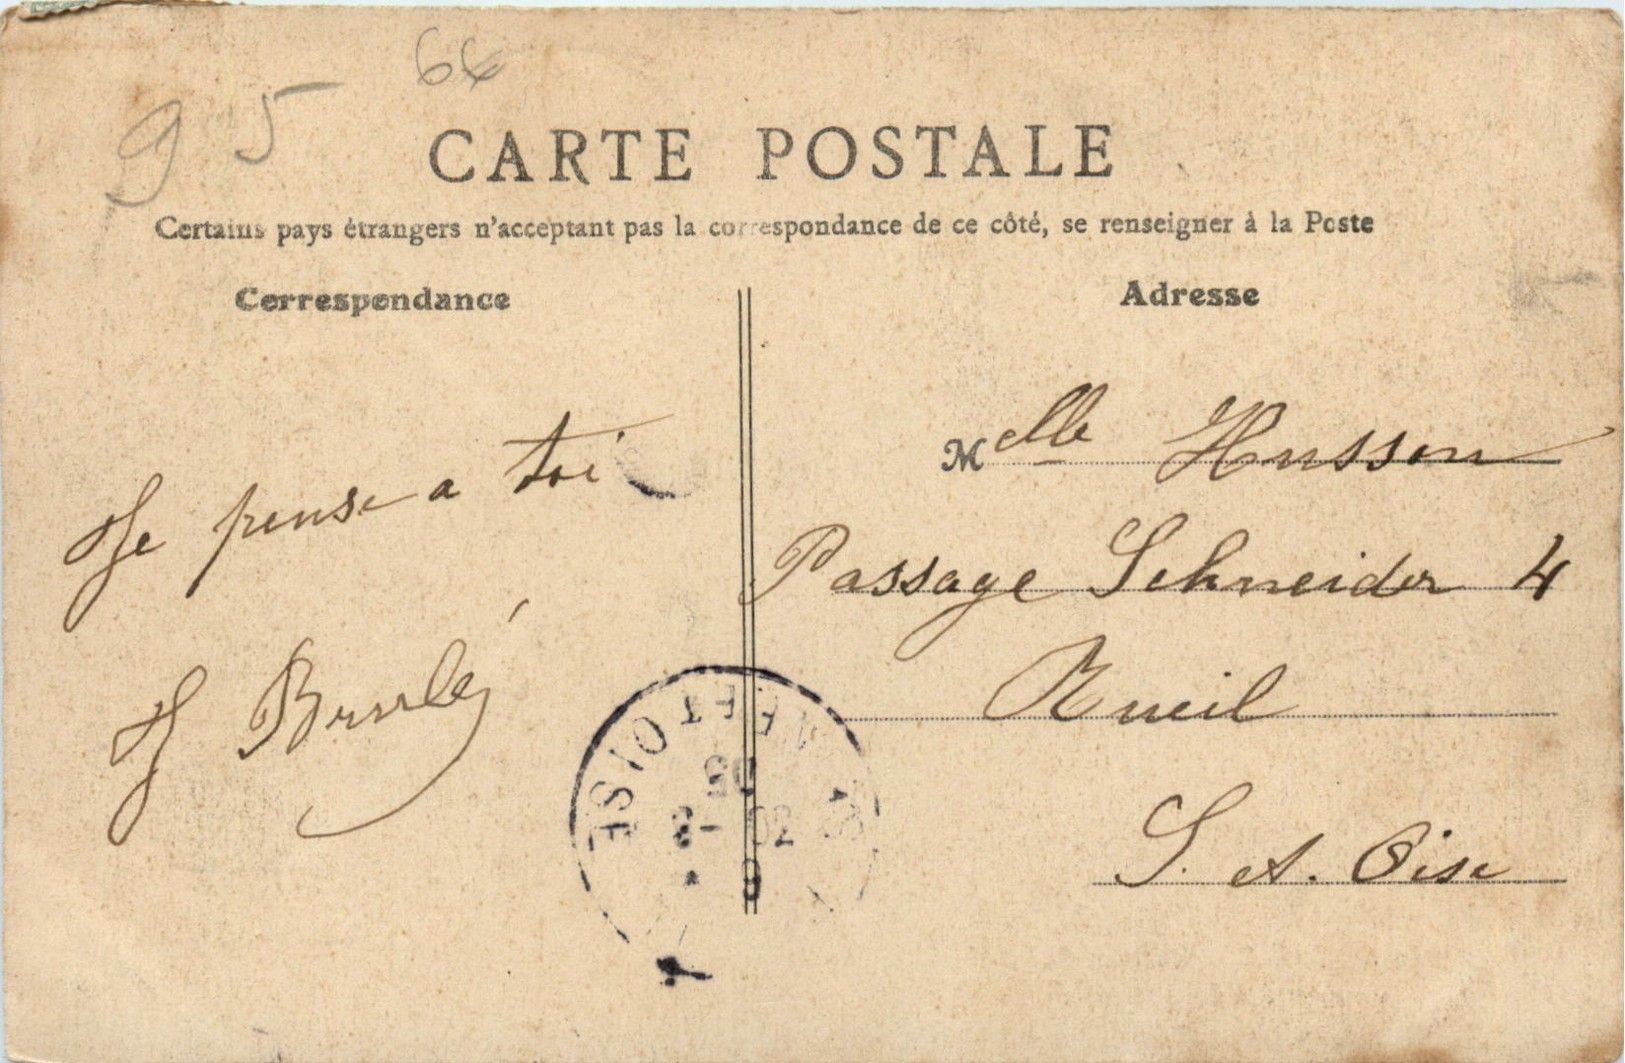 95
66
CARTE POSTALE
Certains pays étrangers n'acceptant pas la correspondance de ce côté, se renseigner à la Poste
Correspondance
Adresse
Je pense a toi
J Brulé
Melle Husson
Passage Schneider 4
Rueil
S. et. Oise
ET OISE